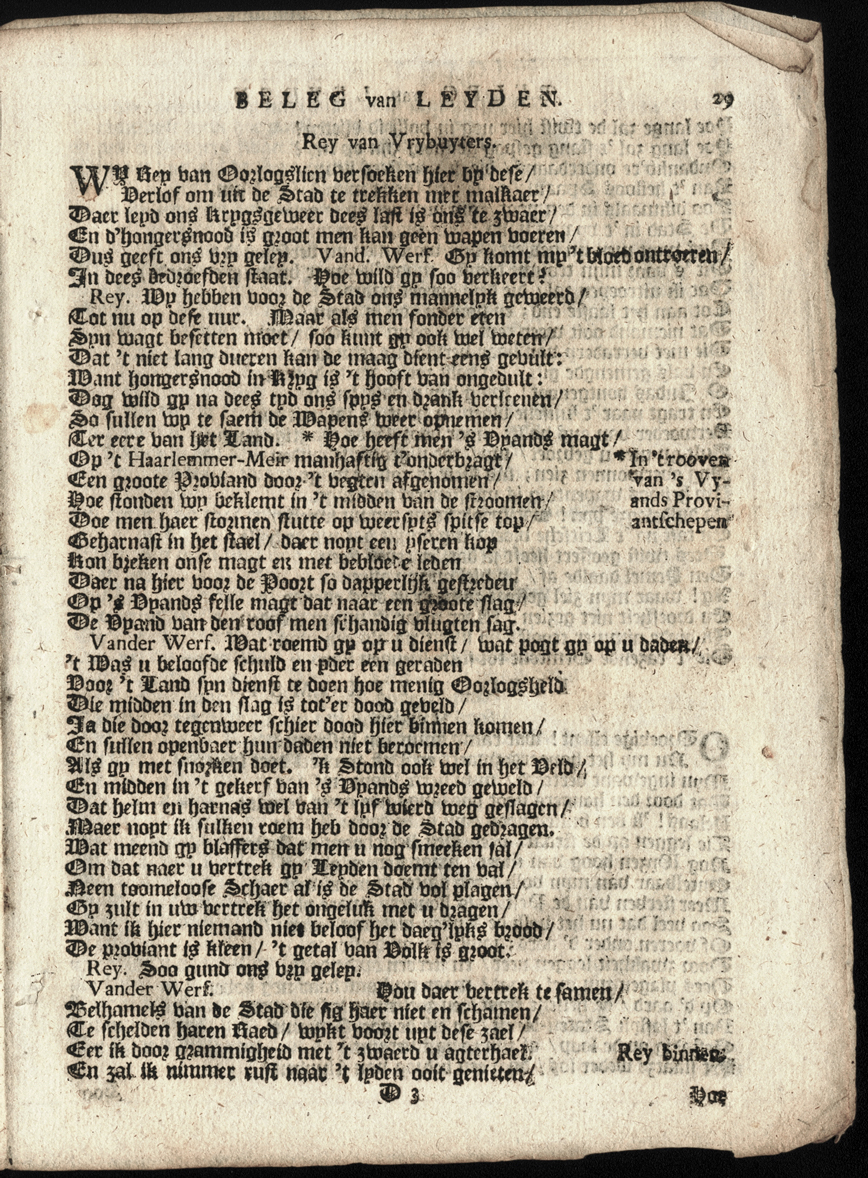 BELEG van LEYDEN. 29
Rey van Vrybuyters.
WY Rey van Oorlogslien versoeken hier by dese/
Verlof om uit de Stad te trekken met malkaer/
Daer leyd ons Krygsgeweer dees last is ons te zwaer/
En d'hongersnood is groot men kan geen wapen voeren/
Dus geeft ons vry geley. Vand. Werf. Gy komt my 't bloed ontroeren/
In dees bedroefden staat. Hoe wild gy soo verkeert?
Rey. Wy hebben voor de Stad ons mannelyk geweerd/
Tot nu op dese uur. Maar als men sonder eten
Syn wagt besetten moet/ soo kunt gy ook wel weten/
Dat 't niet lang dueren kan de maag dient eens gevult:
Want hongersnood in Kryg is 't hooft van ongedult:
Dog wild gy na dees tyd ons spys en drank verleenen/
So sullen wy te saem de Wapens weer opnemen/
Ter eere van het Land. * Hoe heeft men 's Vyands magt/
Op 't Haarlemmer-Meir manhaftig t'onderbragt/ * In 't rooven
Een groote Proviand door 't vegten afgenomen/ van 's Vy-
Hoe stonden wy beklemt in 't midden van de stroomen/ ands Provi-
Doe men haer stormen stutte op weerspts spitse top/ antschepen
Geharnast in het stael/ daer noyt een yseren kop
Kon breken onse magt en met bebloede leden
Daer na hier voor de Poort so dapperlijk gestreden
Op 's Vyands felle magt dat naar een groote slag/
De Vyand van den roof men schandig vlugten sag.
Vander Werf. Wat roemd gy op u dienst/ wat pogt gy op u daden/
't Was u beloofde schuld en yder een geraden
Voor 't Land syn dienst te doen hoe menig Oorlogsheld
Die midden in den slag is tot'er dood geveld/
Ja die door tegenweer schier dood hier binnen komen/
En sullen openbaer hun daden niet beroemen/
Als gy met snorken doet. 'k Stond ook wel in het Veld/
En midden in 't gekerf van 's Vyands wreed geweld/
Dat helm en harnas wel van 't lyf wierd weg geslagen/
Maer noyt ik sulken roem heb door de Stad gedragen.
Wat meend gy blaffers dat men u nog smeeken sal/
Om dat naer u vertrek gy Leyden doemt ten val/
Neen toomeloose Schaer al is de Stad vol plagen/
Gy zult in uw vertrek het ongeluk met u dragen/
Want ik hier niemand niet beloof het daeg'lyks brood/
De proviant is kleen/ 't getal van Volk is groot.
Rey. Soo gund ons vry geley.
Vander Werf. Hou daer vertrek te samen/
Belhamels van de Stad die sig haer niet en schamen/
Te schelden haren Raed/ wykt voort uyt dese zael/
Eer ik door grammigheid met 't zwaerd u agterhael. Rey binnen.
En zal ik nimmer rust naar 't lyden ooit genieten/
D 3 Hoe